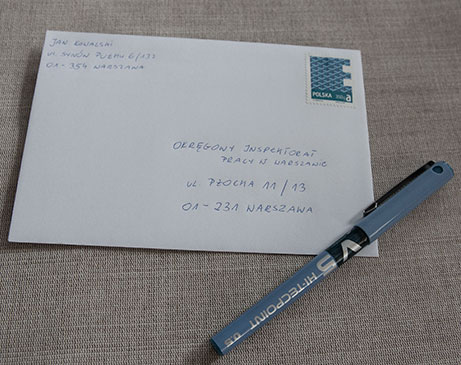 JAN KOWALSKI
UL. SYNÓW PUŁKU 6/133
01-354 WARSZAWA
POLSKA
A
OKRĘGOWY INSPEKTORAT
PRACY W WARSZAWIE
UL. PŁOCKA 11/13
01-231 WARSZAWA
V5
HI-TECPOINT 0.5